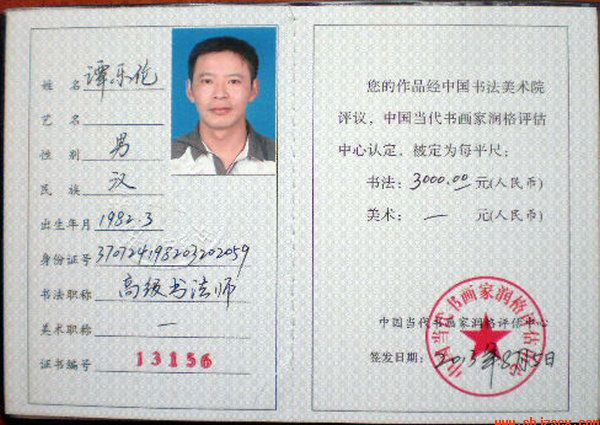 姓名 谭乐伦
艺名
性别 男
民族 汉
出生年月 1982.3
身份证号 370724198203202059
书法职称 高级书法师
美术职称 一
证书编号 13156
您的作品经中国书法美术院
评议，中国当代书画家润格评估
中心认定，被定为每平尺：
书法：3000.00 元(人民币)
美术：一 元(人民币)
中国当代书画家润格评估中心
中国当代书画家润格评估中心
签发日期：2013年8月5日